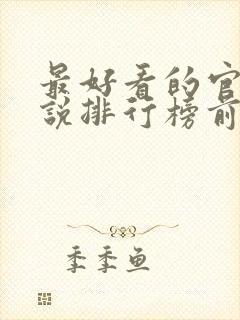 最好看的官
说排行榜前
季季鱼